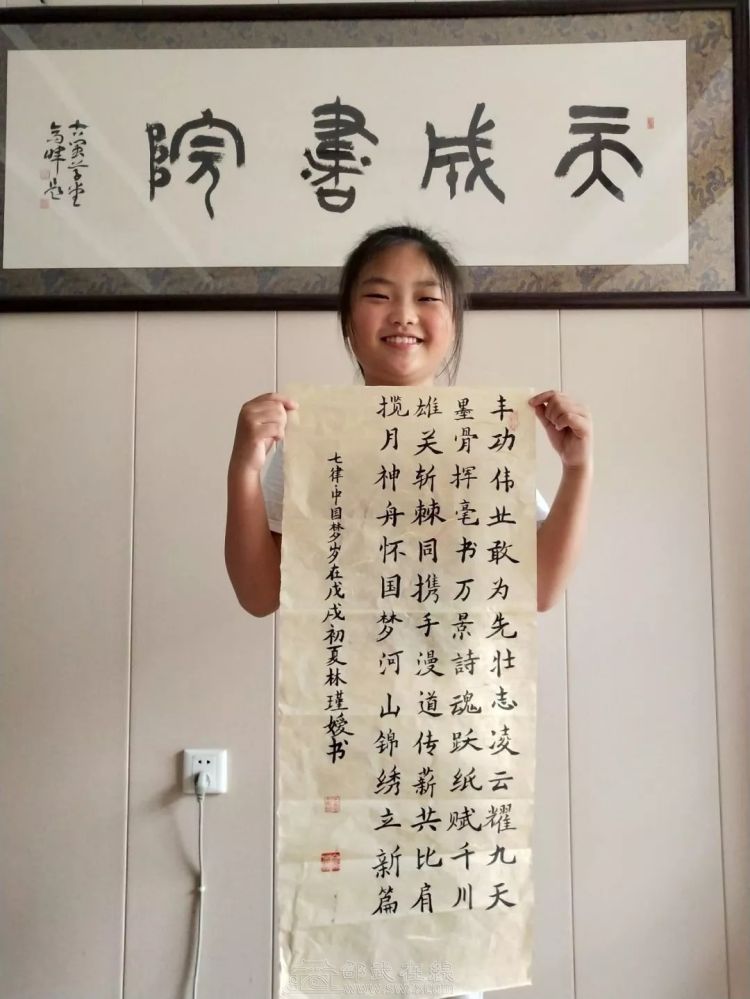 天成書院
堂
题
丰功伟业敢为先壮志凌云耀九天
墨骨挥毫书万景詩魂跃纸赋千川
雄关斩棘同携手漫道传薪共比肩
揽月神舟怀国梦河山锦绣立新篇
七律·中国梦岁在戊戌初夏林瑾嫒书
邵武在線